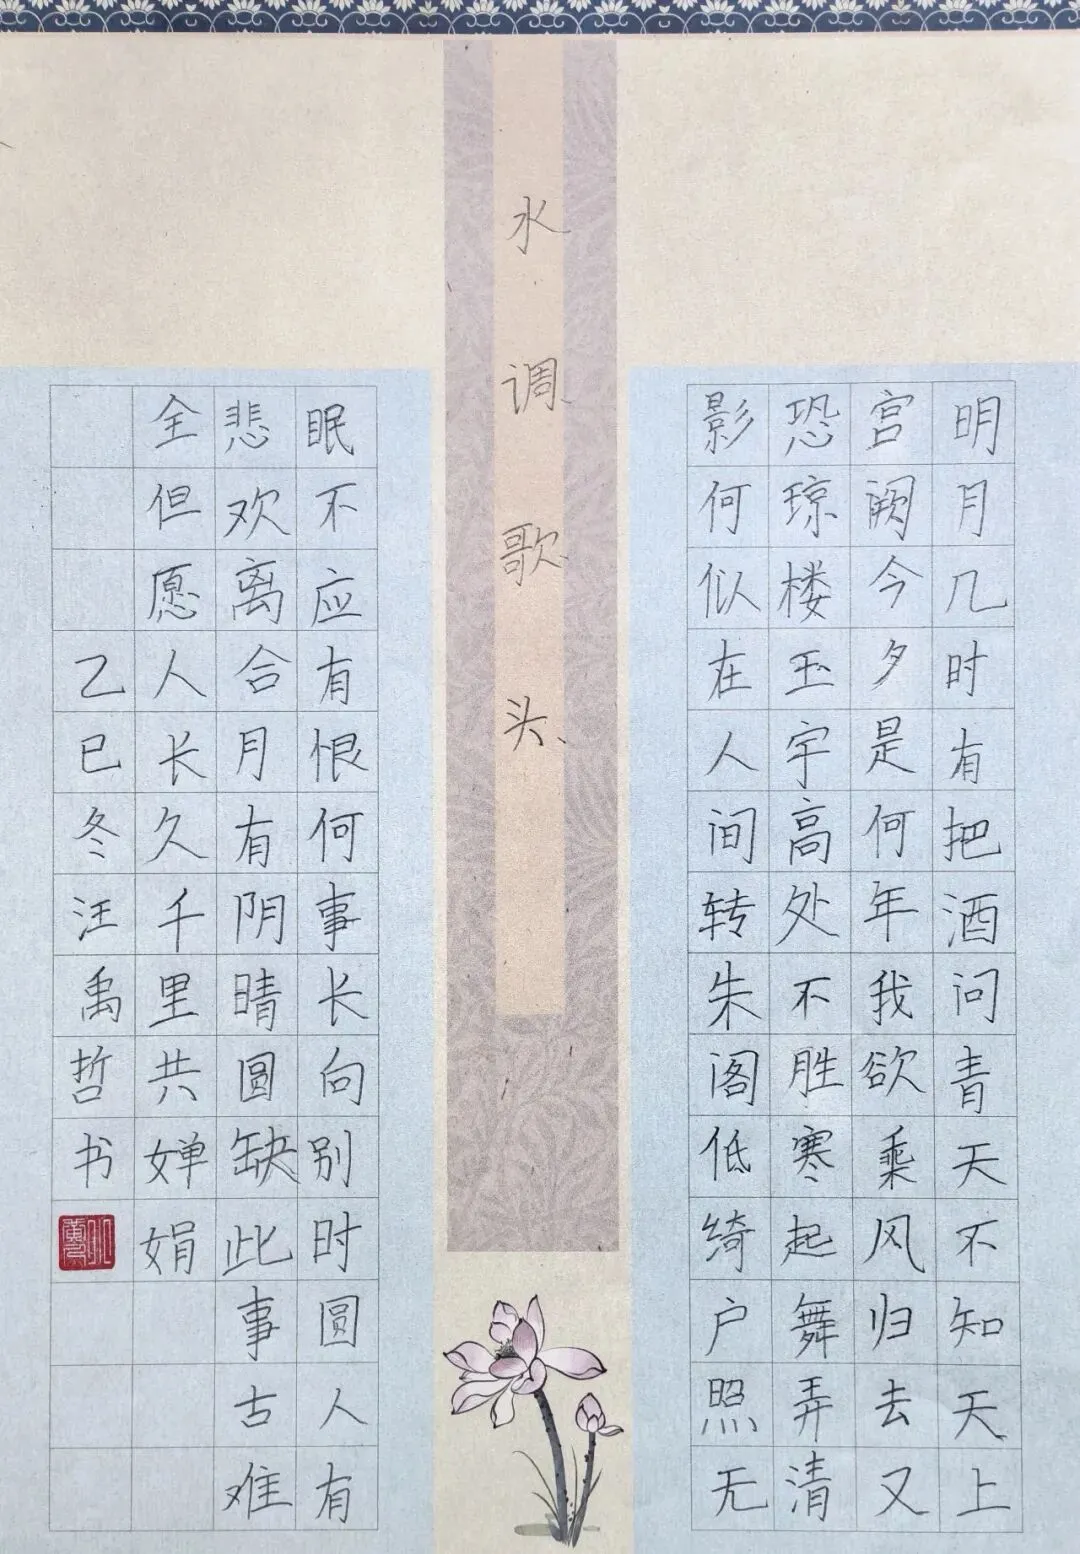 水调歌头
明月几时有把酒问青天不知天上
宫阙今夕是何年我欲乘风归去又
恐琼楼玉宇高处不胜寒起舞弄清
影何似在人间转朱阁低绮户照无
眠不应有恨何事长向别时圆人有
悲欢离合月有阴晴圆缺此事古难
全但愿人长久千里共婵娟
乙巳冬汪禹哲书